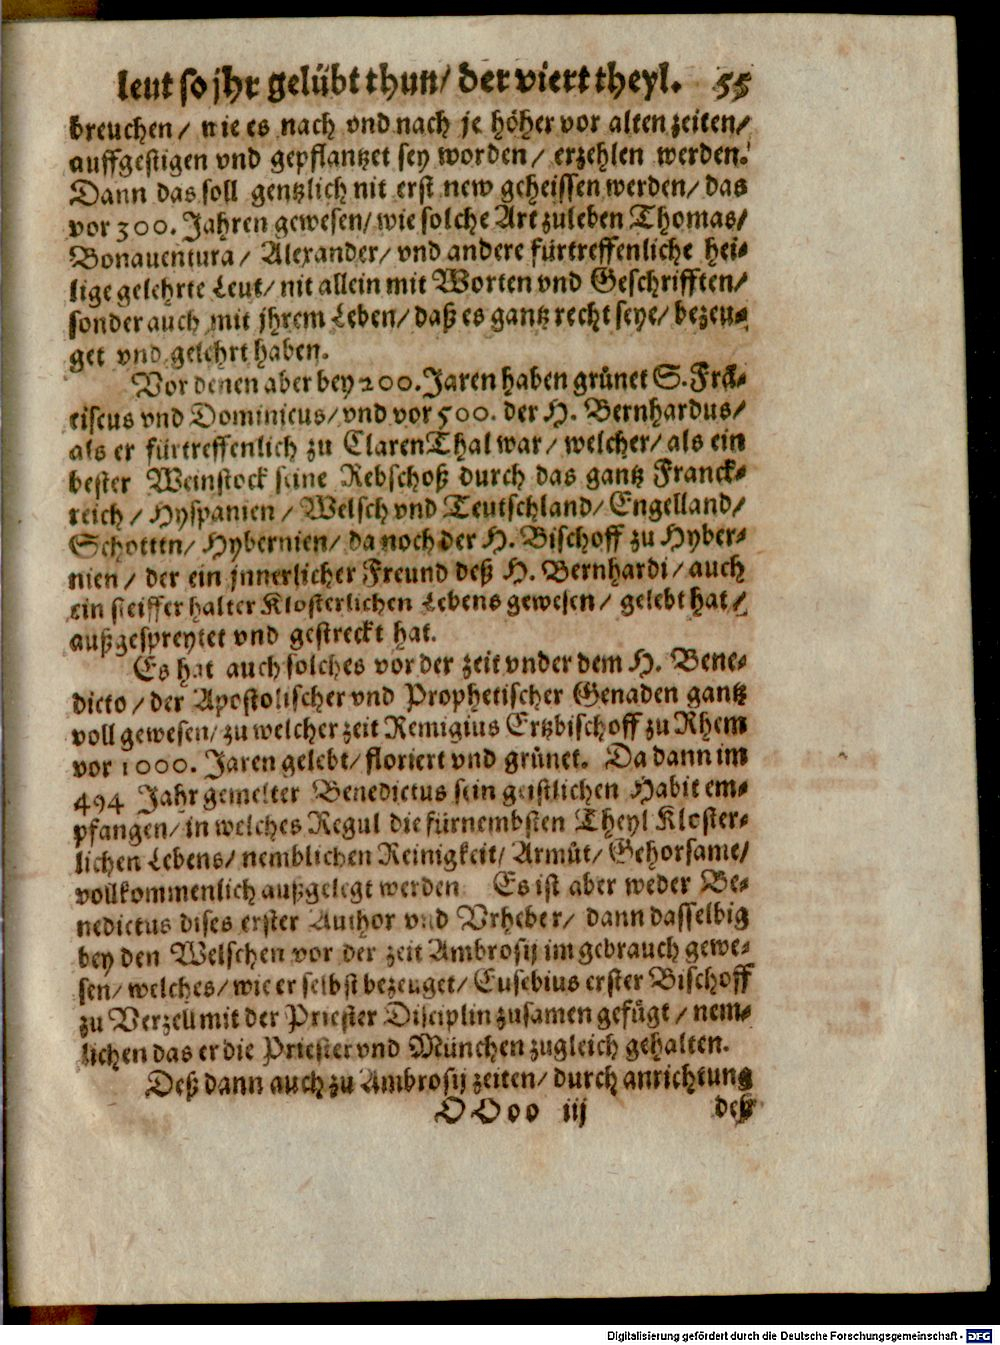 leut so jhr gelübt thun/ der viert theyl. 55
breuchen/ wie es nach vnd nach je höher vor alten zeiten/
auffgestigen vnd gepflantzet sey worden/ erzehlen werden.
Dann das soll gentzlich nit erst new geheissen werden/ das
vor 300. Jahren gewesen/ wie solche Art zuleben Thomas/
Bonauentura/ Alexander/ vnd andere fürtreffenliche hei-
lige gelehrte Leut/ nit allein mit Worten vnd Geschrifften/
sonder auch mit jhrem Leben/ daß es gantz recht seye/ bezeu-
get vnd gelehrt haben.
Vor denen aber bey 200. Jaren haben grünet S. Frā-
ciscus vnd Dominicus/ vnd vor 500. der H. Bernhardus/
als er fürtreffenlich zu ClarenThal war/ welcher/ als ein
bester Weinstock seine Rebschoß durch das gantz Franck-
reich/ Hyspanien/ Welsch vnd Teutschland/ Engelland/
Schotttn/ Hybernien/ da noch der H. Bischoff zu Hyber-
nien/ der ein jnnerlicher Freund deß H. Bernhardi/ auch
ein steiffer halter Klosterlichen Lebens gewesen/ gelebt hat/
außgespreytet vnd gestreckt hat.
Es hat auch solches vor der zeit vnder dem H. Bene-
dicto/ der Apostolischer vnd Prophetischer Genaden gantz
voll gewesen/ zu welcher zeit Remigius Ertzbischoff zu Rhem
vor 1000. Jaren gelebt/ floriert vnd grünet. Da dann im
494 Jahr gemelter Benedictus sein geistlichen Habit em-
pfangen/ in welches Regul die fürnembsten Theyl Kloster-
lichen Lebens/ nemblichen Reinigkeit/ Armüt/ Gehorsame/
vollkommenlich außgelegt werden Es ist aber weder Be-
nedictus dises erster Author vnd Vrheber/ dann dasselbig
bey den Welschen vor der zeit Ambrosij im gebrauch gewe-
sen/ welches/ wie er selbst bezeuget/ Eusebius erster Bischoff
zu Verzell mit der Priester Disciplin zusamen gefügt/ nem-
lichen das er die Priester vnd München zugleich gehalten.
Deß dann auch zu Ambrosij zeiten/ durch anrichtung
OOoo iij deß
Digitalisierung gefördert durch die Deutsche Forschungsgemeinschaft - DFG